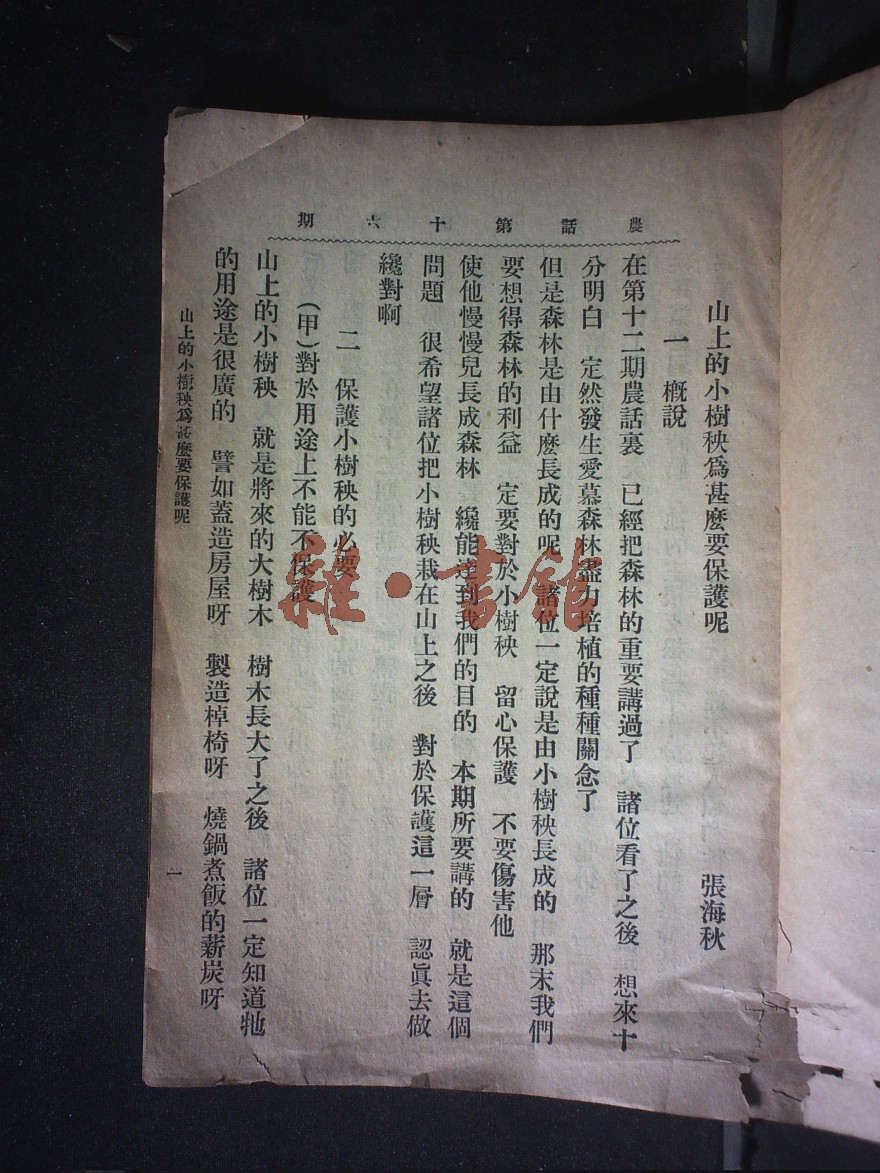 農話第十六期
山上的小樹秧爲甚麼要保護呢　張海秋
一　概說
在第十二期農話裏　已經把森林的重要講過了　諸位看了之後　想來十
分明白　定然發生愛慕森林盡力培植的種種關念了
但是森林是由什麼長成的呢　諸位一定說是由小樹秧長成的　那末我們
要想得森林的利益　定要對於小樹秧　留心保護　不要傷害他
使他慢慢兒長成森林　纔能達到我們的目的　本期所要講的　就是這個
問題　很希望諸位把小樹秧栽在山上之後　對於保護這一層　認眞去做
纔對啊
二　保護小樹秧的必要
（甲）對於用途上不能不保護
山上的小樹秧　就是將來的大樹木　樹木長大了之後　諸位一定知道牠
的用途是很廣的　譬如蓋造房屋呀　製造棹椅呀　燒鍋煮飯的薪炭呀
山上的小樹秧爲甚麼要保護呢
一
雜·書館